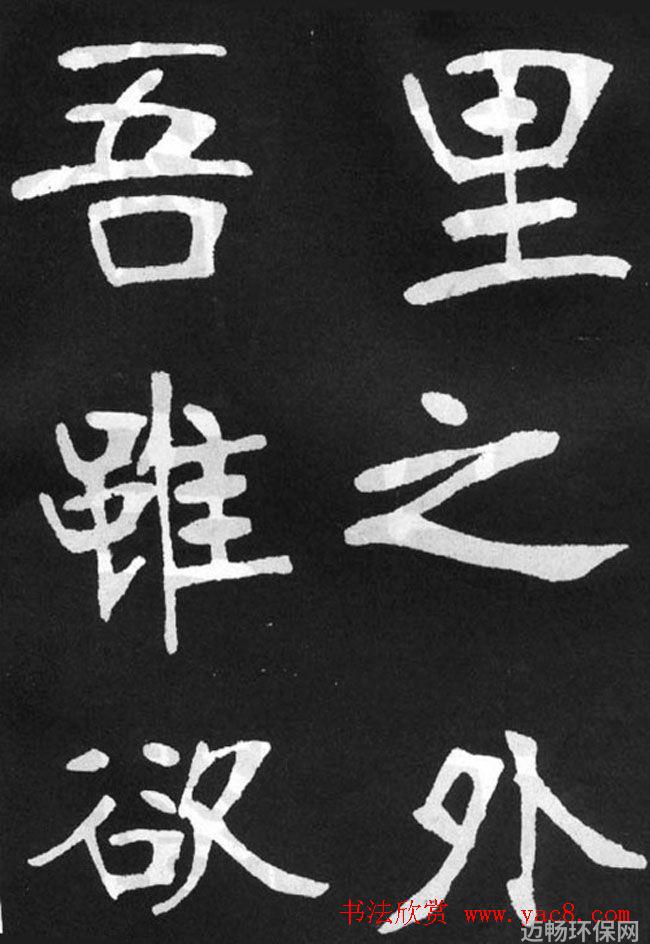 里之外
吾雖欲
书法欣赏 www.yac8.com
迈畅环保网